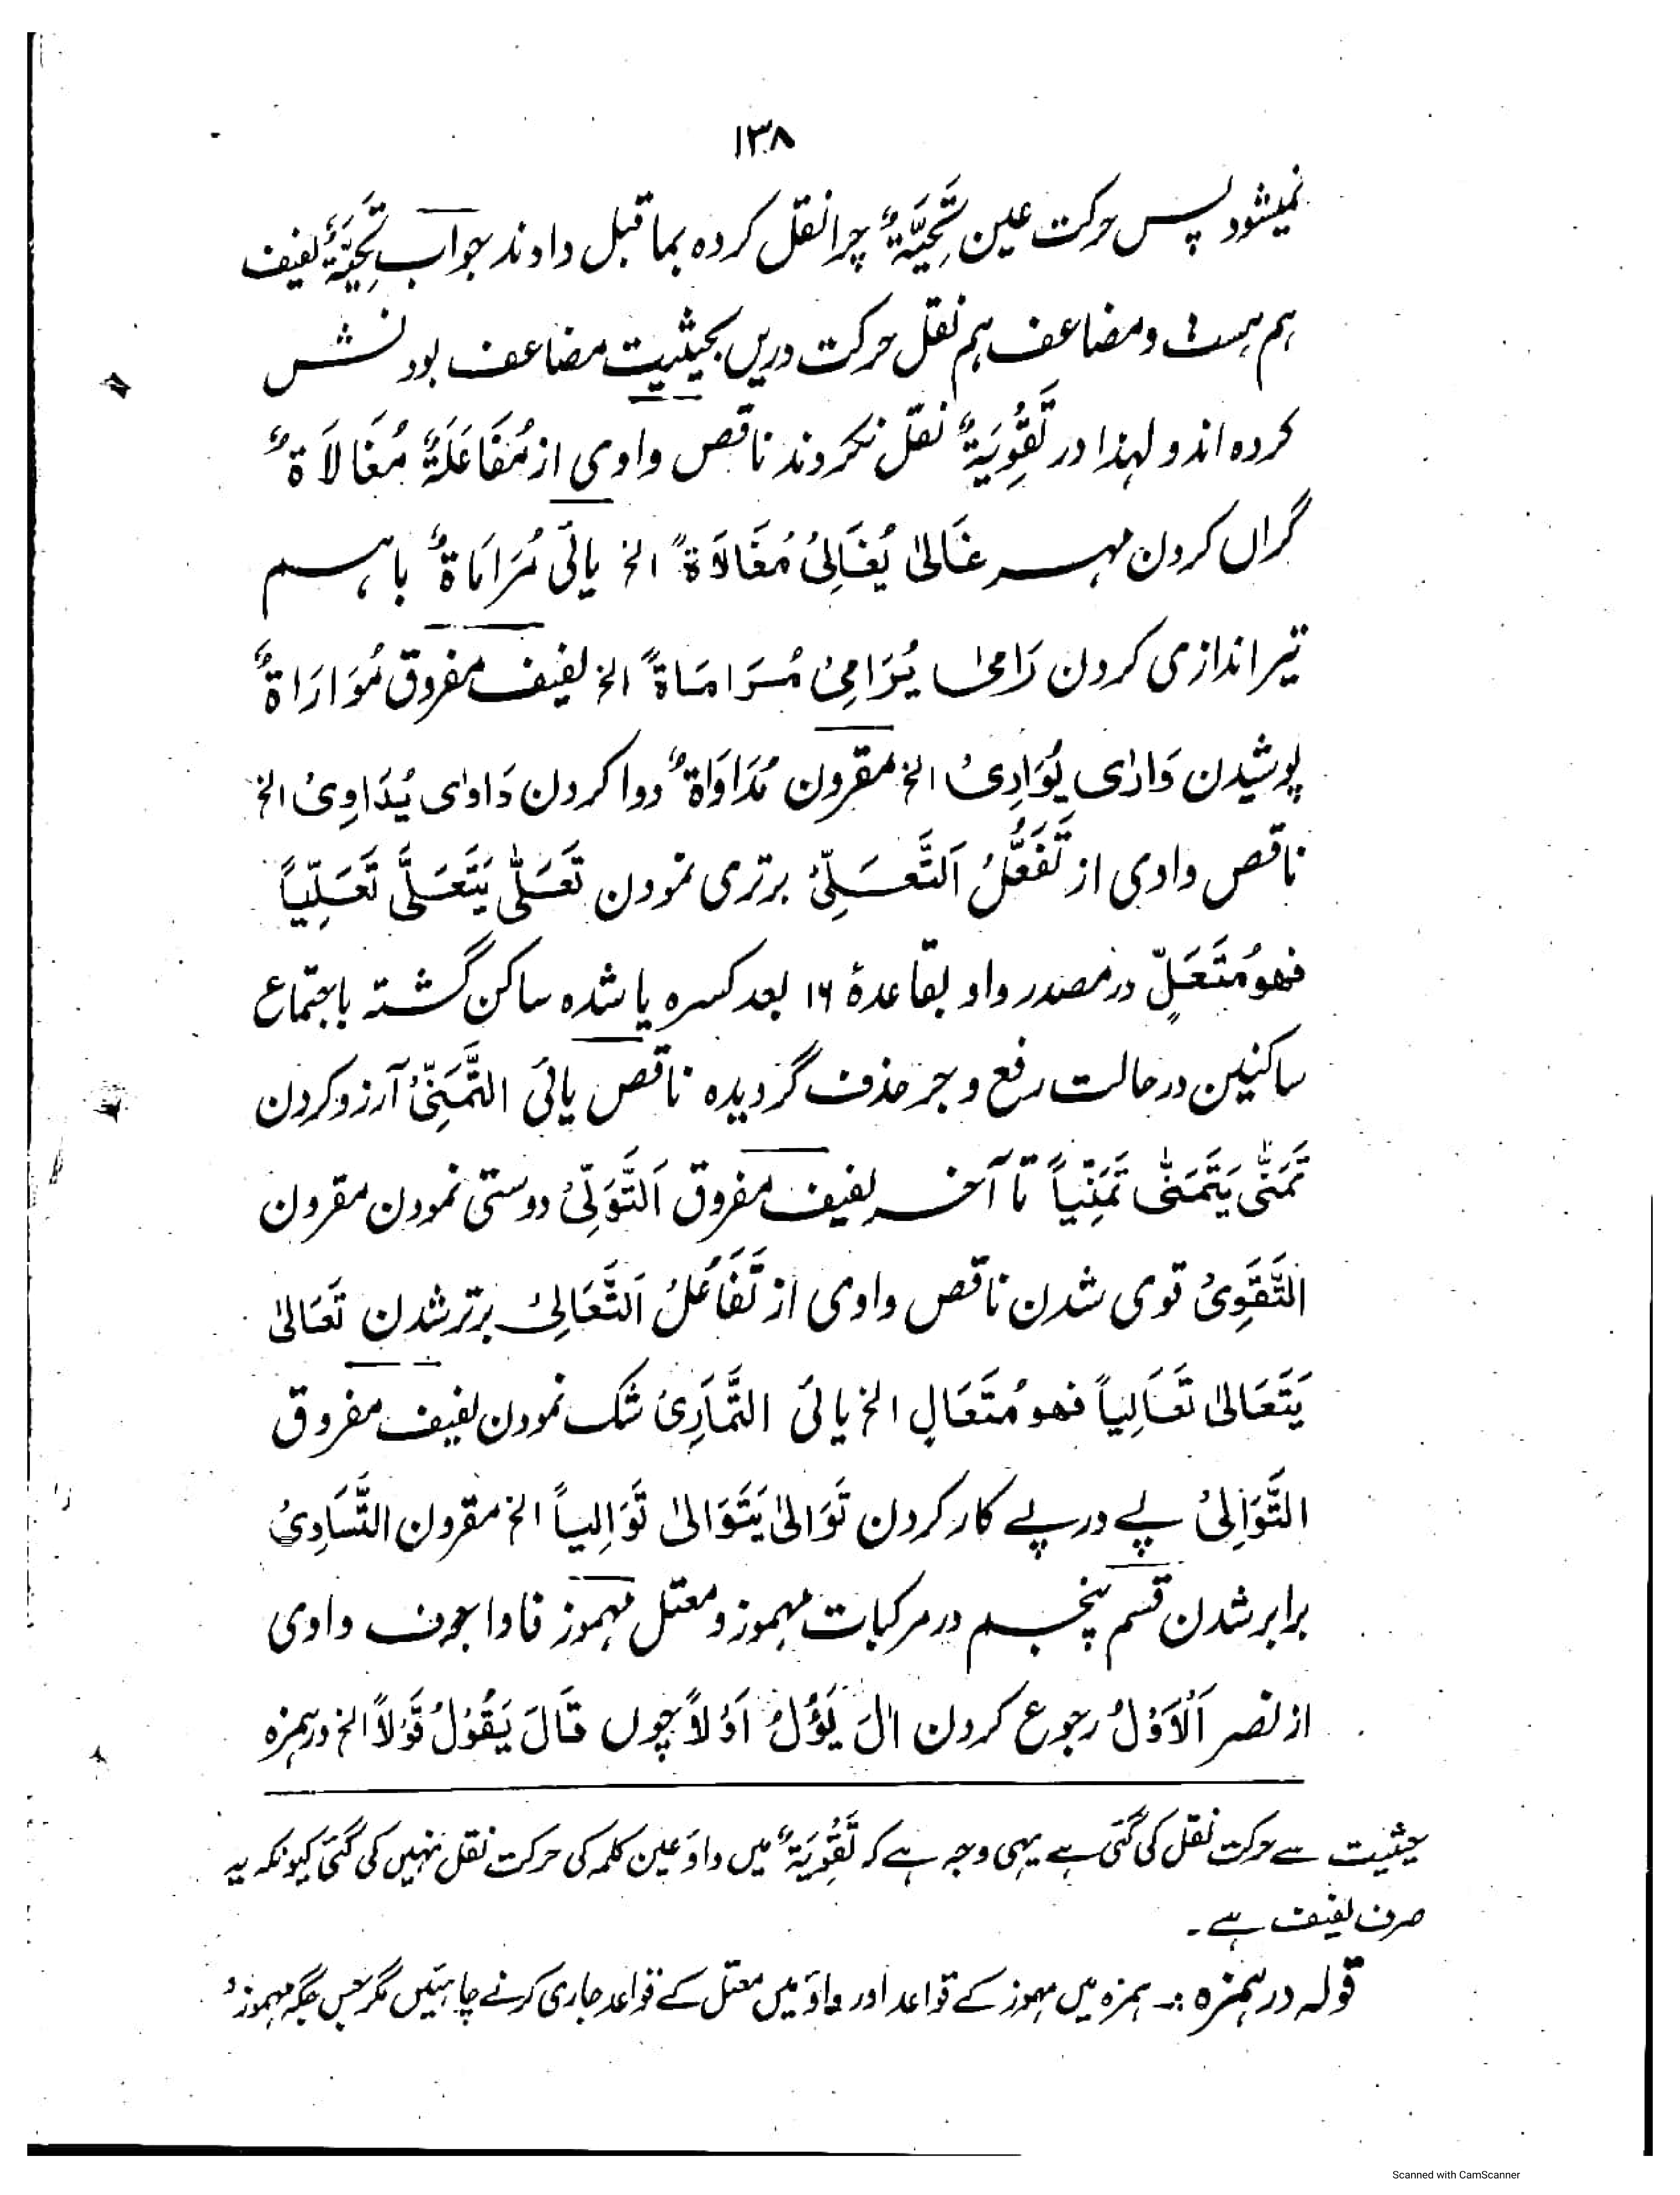 ۱۳۸
نمیشود پس حرکت عین تَحِیَّةٌ چرا نقل کرده بما قبل دادند جواب تَحِیَّةٌ لفیف
ہم ہست ومضاعف ہم نقل حرکت دریں بحیثیت مضاعف بودنش
کرده اند و لہذا در تَقْوِیَةٌ نقل نکردند ناقص واوی از مُفَاعَلَةٌ مُغَالَاةٌ
گراں کردن مہر غَالیٰ یُغَالِیْ مُغَالَاةً الخ یائی مُرَامَاةٌ باہم
تیر اندازی کردن رَامیٰ یُرَامِیْ مُرَامَاةً الخ لفیف مفروق مُوَارَاةٌ
پوشیدن وَارٰی یُوَارِیْ الخ مقرون مُدَاوَاةٌ دوا کردن دَاوٰی یُدَاوِیْ الخ
ناقص واوی از تَفَعُّلُ اَلتَّعَلِّیْ برتری نمودن تَعَلّٰی یَتَعَلَّی تَعَلِّیاً
فهو مُتَعَلٍّ در مصدر واو بقاعدۂ ۱۶ بعد کسرہ یا شدہ ساکن گشتہ باجتماع
ساکنین در حالت رفع و جر حذف گردیدہ ناقص یائی التَّمَنِّیْ آرزو کردن
تَمَنّٰی یَتَمَنّٰی تَمَنِّیاً تا آخر لفیف مفروق اَلتَّوَلِّیْ دوستی نمودن مقرون
التَّقَوِّیْ قوی شدن ناقص واوی از تَفَاعُلُ اَلتَّعَالِیْ برتر شدن تَعَالیٰ
یَتَعَالیٰ تَعَالِیاً فهو مُتَعَالٍ الخ یائی التَّمَارِیْ شک نمودن لفیف مفروق
التَّوَالِیْ پے در پے کار کردن تَوَالیٰ یَتَوَالیٰ تَوَالِیاً الخ مقرون التَّسَاوِیْ
برابر شدن قسم پنجم در مرکبات مہموز و معتل مہموز فا واجوف واوی
از نصر اَلْاَوْلُ رجوع کردن اٰلَ یَؤُلُ اَوْلاً چوں قَالَ یَقُوْلُ قَوْلاً الخ در ہمزہ
حیثیت سے حرکت نقل کی گئی ہے یہی وجہ ہے کہ تَقْوِیَةٌ میں واؤ عین کلمہ کی حرکت نقل نہیں کی گئی کیونکہ یہ
صرف لفیف ہے۔
قولہ در ہمزہ :۔ ہمزہ میں مہموز کے قواعد اور واؤ میں معتل کے قواعد جاری کرنے چاہئیں مگر جس جگہ مہموز
Scanned with CamScanner